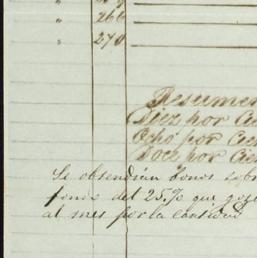 " 266
" 270
Resumen
Diez por Cie
Ocho por Cien
Doce por Cien
Se obsendian bonos sobr
fondo del 25.% que goz
al mes por la cantidad